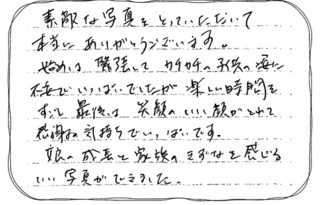 素敵な写真をとっていただいて
本当にありがとうございます。
始めは緊張してカチカチの子供の姿に
不安でいっぱいでしたが楽しい時間を
すごし最後は笑顔のいい顔がとれて
感謝の気持ちでいっぱいです。
娘の成長と家族のきずなを感じる
いい写真ができました。